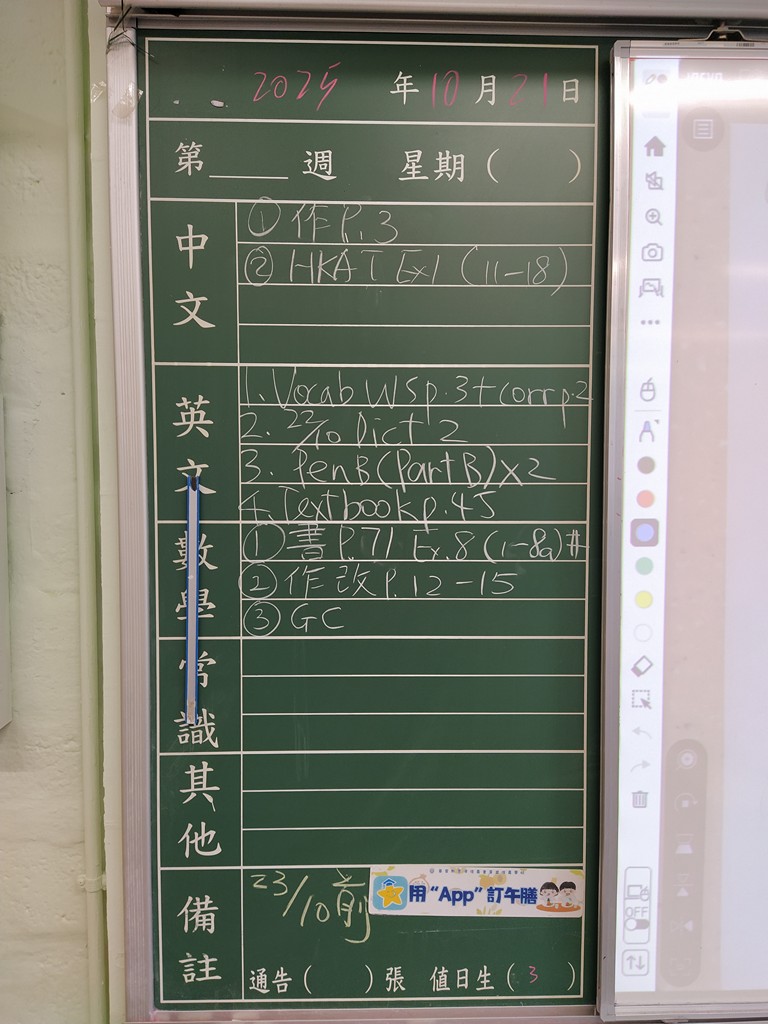 2025 年 10 月 21 日
第 週 星期( )
中文
① 作 P.3
② HKAT Ex1 (11-18)
英文
1. Vocab WS p.3 + corr p.2
2. 22/10 Dict 2
3. Pen B (Part B) x 2
4. Textbook p.45
數學
① 書 P.71 Ex.8 (1-8a) #
② 作改 P.12-15
③ GC
常識
其他
備註
23/10前
用 "App" 訂午膳
通告( )張 值日生( 3 )
OFF